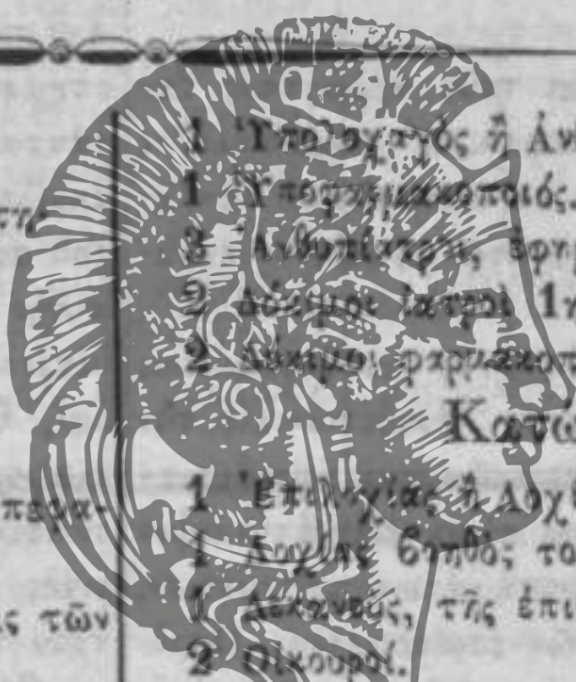 1 Ὑπολοχαγὸς ἢ Ἀν
1 Ὑποφαρμακοποιός.
2 Ἀνθυπίατροι, ἐφη
2 Δόκιμοι ἰατροὶ 1η
2 Δόκιμοι φαρμακοπ
Κατώ
1 Ἐπιλοχίας ἢ Λοχί
1 Λοχίας βοηθὸς το
1 Δεκανεύς, τῆς ἐπι
2 Οἰκουροί.
ς τῶν